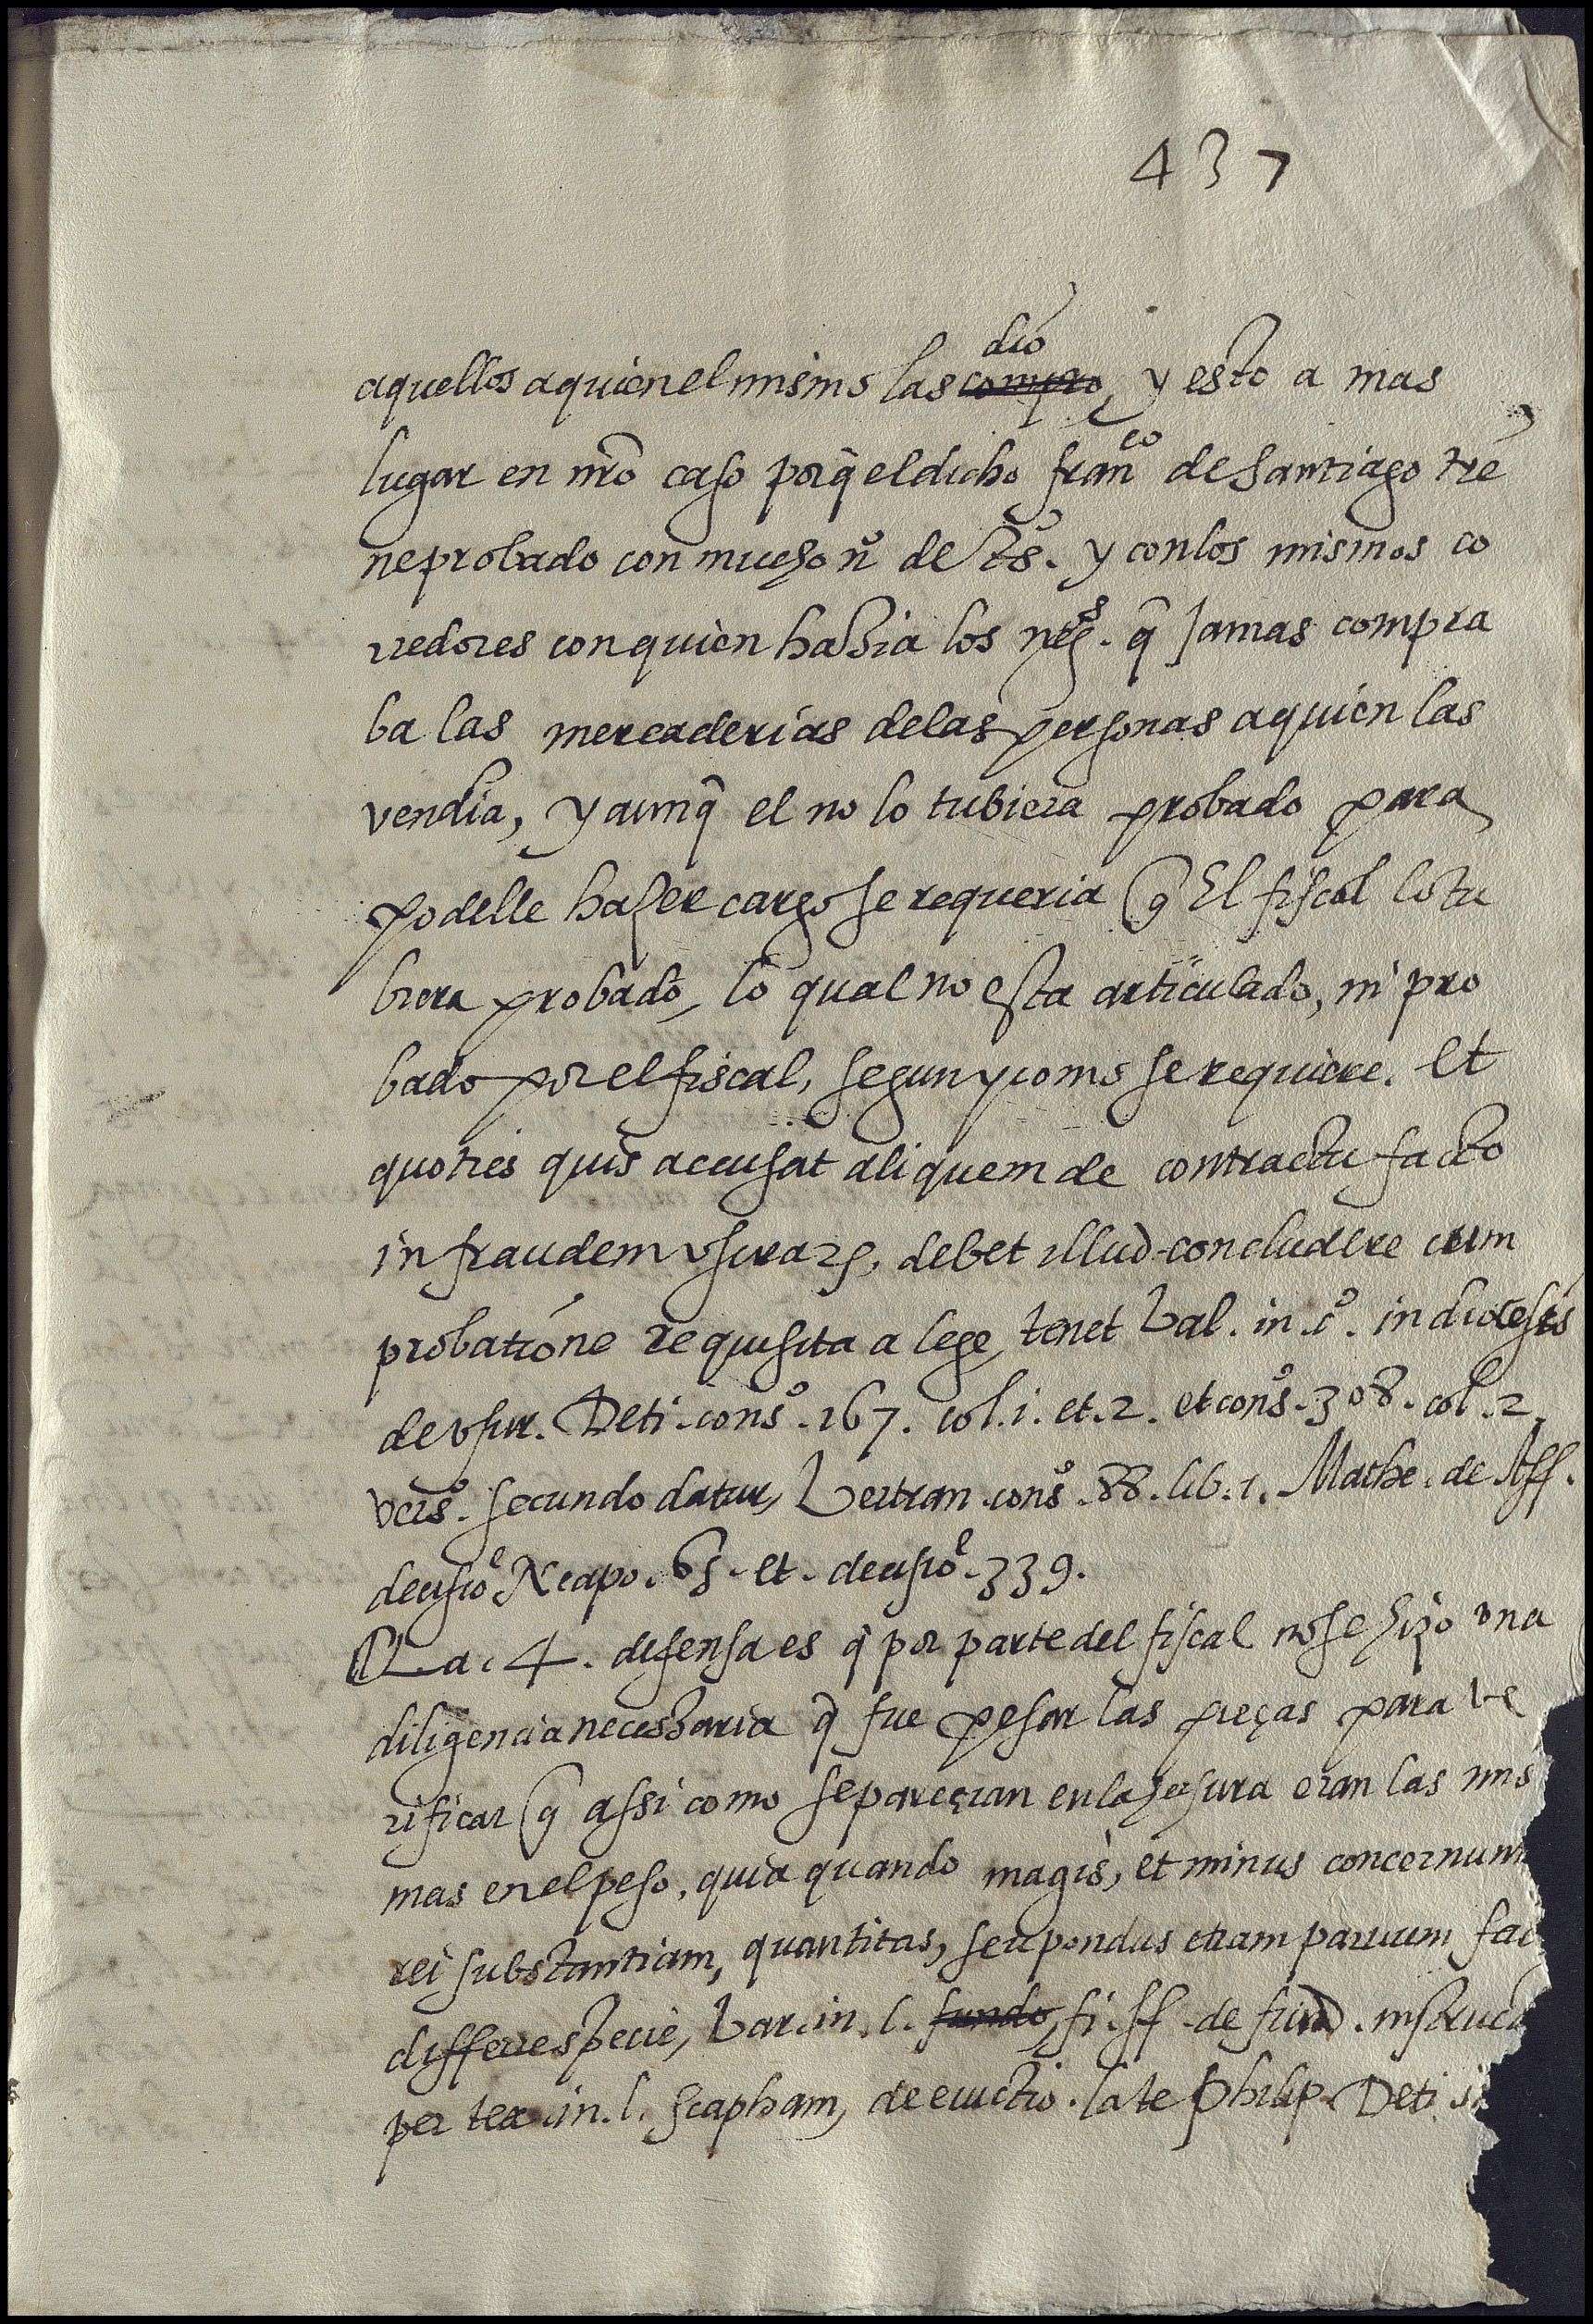 437
dio
aquellos a quien el mismo las compro, y esto a mas
lugar en nro caso porq̃ el dicho franco de Santiago tie
ne probado con mucho nº de ts. y con los mismos co
rredores con quien hazia los negs. q̃ Jamas compra
ba las mercaderias de las personas a quien las
vendia, y aunq̃ el no lo tubiera probado para
podelle hazer cargo se requeria q̃ El fiscal lo tu
biera probado, lo qual no esta articulado, ni pro
bado por el fiscal, segun y como se requiere. et
quoties quis accusat aliquem de contractu facto
in fraudem usurarꝝ, debet illud concludere cum
probatione requisita a lege, tenet bal. in c.º in diocesis
de usur. Deti. consº. 167. col. 1. et. 2. et consº. 308. col. 2.
versº. secundo datur, bertran. consº. 88. lib. 1. Mathe. de Aff.
decisioe Neapo. 65. et. decisioe. 339.
La. 4. defensa es q̃ por parte del fiscal no se hizo una
diligencia necessaria q̃ fue pesar las pieças para ve
rificar q̃ assi como se pareçian en la hechura eran las mis
mas en el peso, quia quando magis, et minus concernunt
rei substantiam, quantitas, seu pondus etiam parvum fac
differre specie, bar. in. l. fundo, fi. ff. de fund. instruct
per tex. in. l. scapham, de evictio. late Philip. Deti. in